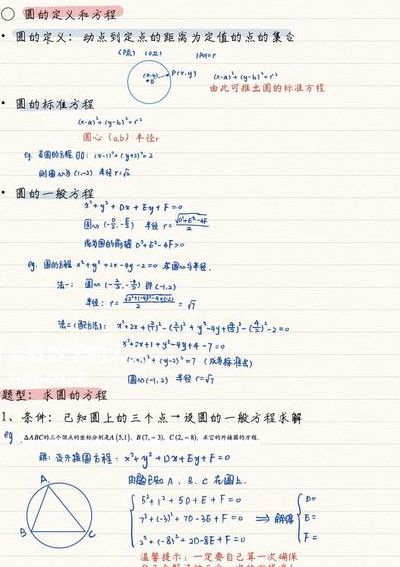 圆的定义和方程
• 圆的定义: 动点到定点的距离为定值的点的集合
P(x,y)
(x-a)²+(y-b)²=r²
由此可推出圆的标准方程
• 圆的标准方程
(x-a)²+(y-b)²=r²
圆心 (a,b) 半径r
eg. 若圆的方程 (x-1)²+(y+2)²=2
则圆心为(1,-2) 半径 r=√2
• 圆的一般方程
x²+y²+Dx+Ey+F=0
圆心 (-D/2,-E/2) 半径 r=√(D²+E²-4F)/2
成为圆的前提 D²+E²-4F>0
eg. 圆的方程 x²+y²+2x-4y-2=0 求圆心与半径.
法一: 圆心 即(-1,2)
半径: r= =√7
法二(配方法):
x²+2x+1+y²-4y+4-7=0
(x+1)²+(y-2)²=7 (成为标准式)
圆心(-1,2) 半径 r=√7
题型: 求圆的方程
1、条件: 已知圆上的三个点→设圆的一般方程求解
eg. △ABC的三个顶点的坐标分别是A(5,1), B(7,-3), C(2,-8), 求它的外接圆的方程.
解: 设外接圆方程: x²+y²+Dx+Ey+F=0
A
B
C
由题已知 A、B、C 在圆上.
5²+1²+5D+E+F=0
7²+(-3)²+7D-3E+F=0 ⇒ 解得
2²+(-8)²+2D-8E+F=0
D=
E=
F=
温馨提示: 一定要自己算一次确保